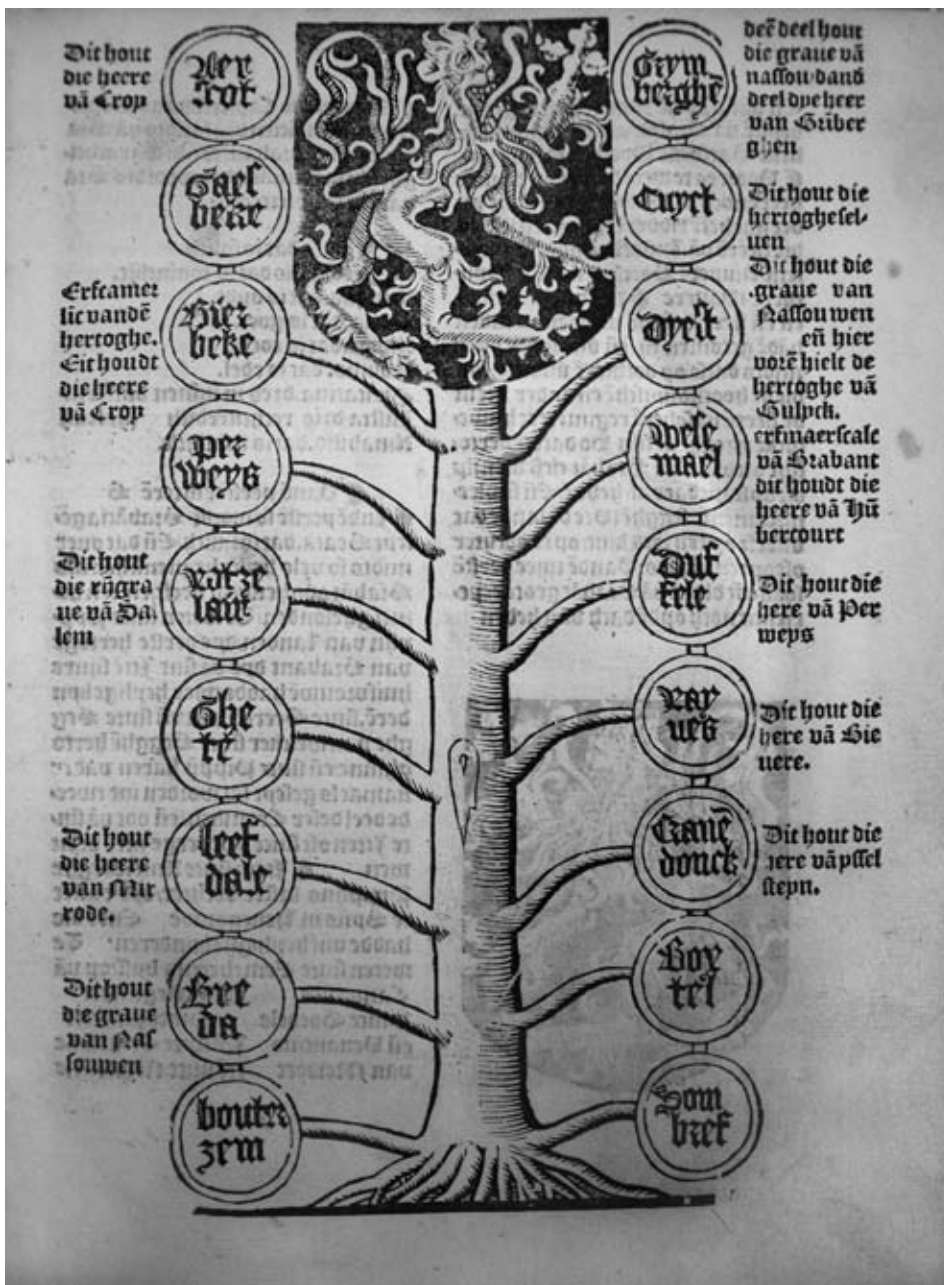 Dit hout
die heere
vā Croy
Aer
scot
Gaes
beke
Erfcamer
lic vandē
hertoghe.
Dit houdt
die heere
vā Croy
Bier
beke
Per
weys
Dit hout
die rīgra
ue vā Sa
lem
Rotze
lair
Ghe
te
Dit hout
die heere
van Mir
rode.
leef
dale
Dit hout
die graue
van Nas
souwen
Bre
da
bouter
zem
deē deel hout
die graue vā
nassou dand
deel dye heer
van Grīber
ghen
Grym
berghē
Cuyck
Dit hout die
hertoghesel-
uen
Dyest
Dit hout die
graue van
Nassouwen
eñ hier
vorē hielt de
hertoghe vā
Gulyck.
Wese
mael
erfmaerscalc
vā Brabant
dit houdt die
heere vā Hū
bercourt
Duf
fele
Dit hout die
here vā Per
weys
Ray
ues
Dit hout die
here vā Bie
uere.
Cranē
donck
Dit hout die
here vā yssel
steyn.
Boy
tel
Som
bref